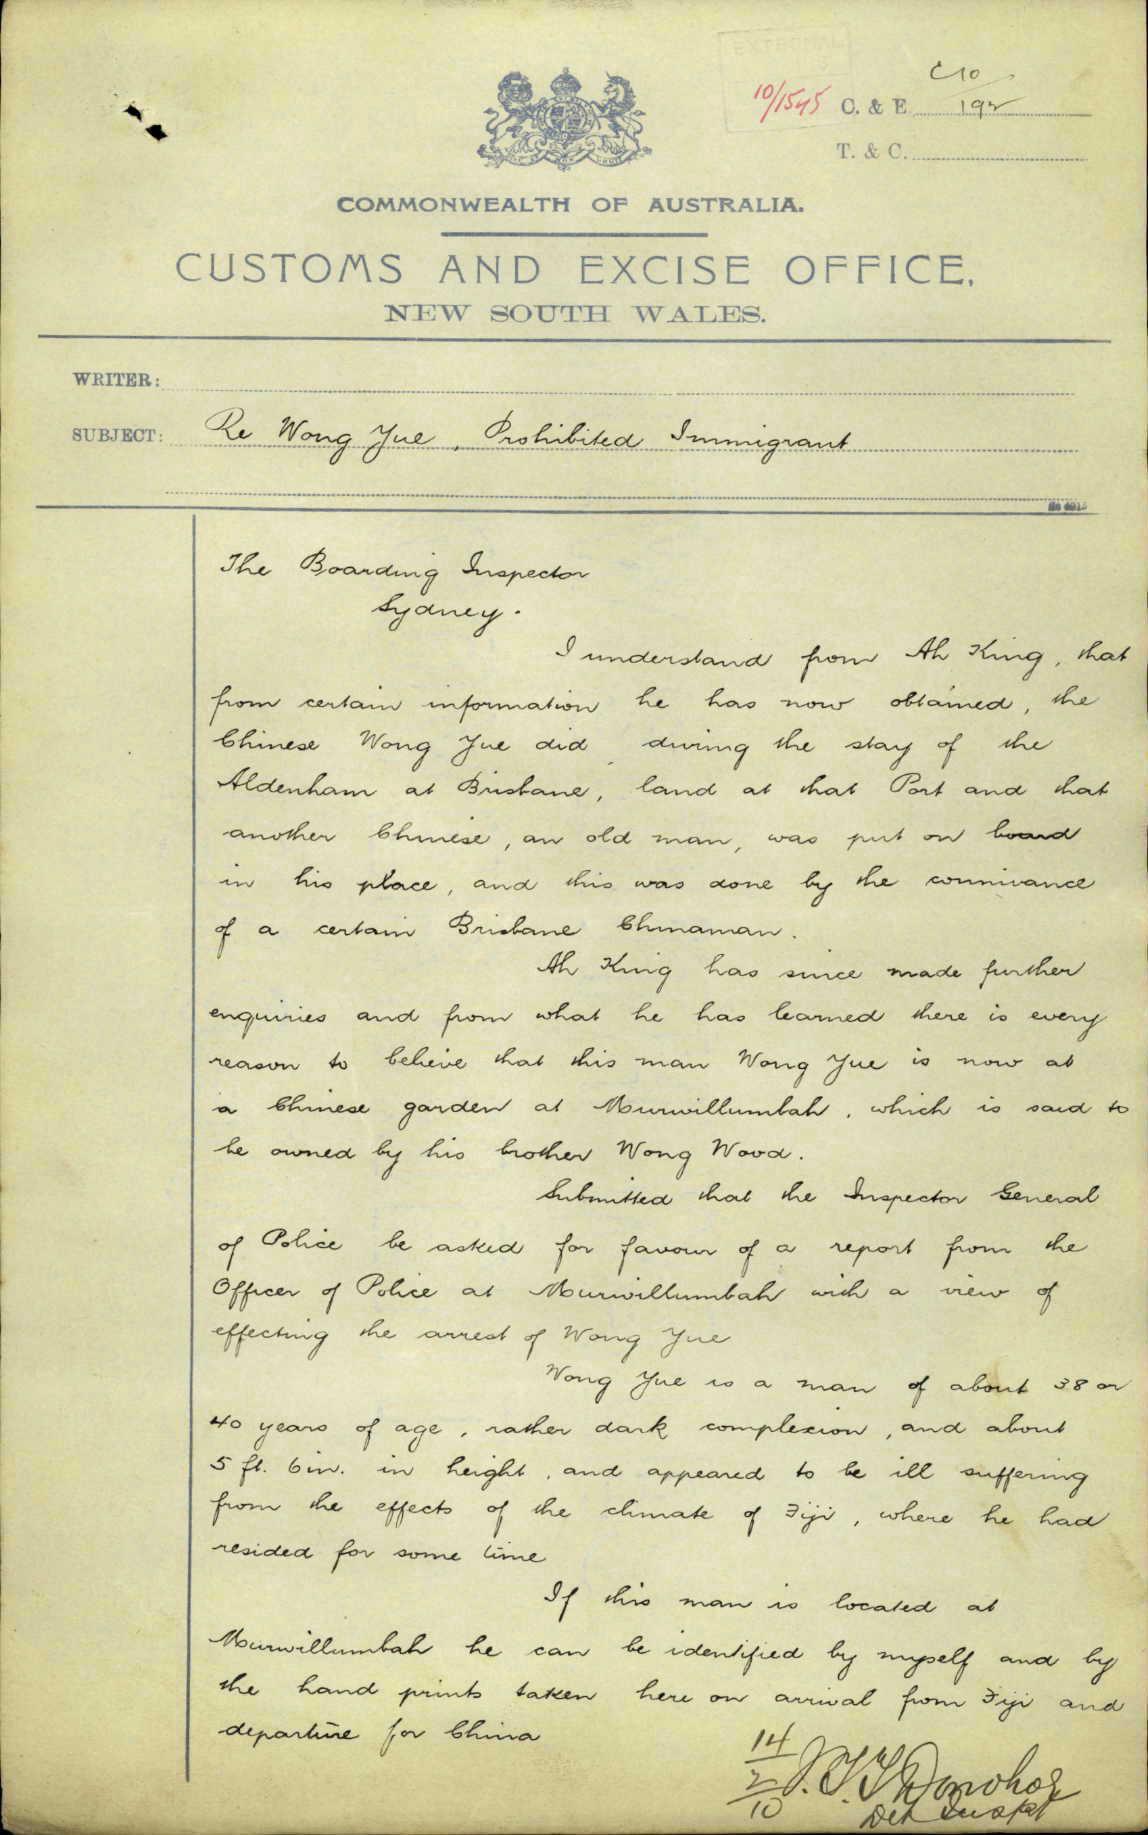 10/1545 C. & E. C10
192
T. & C.
COMMONWEALTH OF AUSTRALIA.
CUSTOMS AND EXCISE OFFICE,
NEW SOUTH WALES.
WRITER:
SUBJECT: Re Wong Yue, Prohibited Immigrant
The Boarding Inspector
Sydney.
I understand from Ah King, that
from certain information he has now obtained, the
Chinese Wong Yue did, during the stay of the
Aldenham at Brisbane, land at that Port and that
another Chinese, an old man, was put on board
in his place, and this was done by the connivance
of a certain Brisbane Chinaman.
Ah King has since made further
enquiries and from what he has learned there is every
reason to believe that this man Wong Yue is now at
a Chinese garden at Murwillumbah, which is said to
be owned by his brother Wong Wood.
Submitted that the Inspector General
of Police be asked for favour of a report from the
Officer of Police at Murwillumbah with a view of
effecting the arrest of Wong Yue
Wong Yue is a man of about 38 or
40 years of age, rather dark complexion, and about
5 ft. 6 in. in height, and appeared to be ill suffering
from the effects of the climate of Fiji, where he had
resided for some time
If this man is located at
Murwillumbah he can be identified by myself and by
the hand prints taken here on arrival from Fiji and
departure for China
14/2/10 J.T.T. Donohoe
Det Inspt